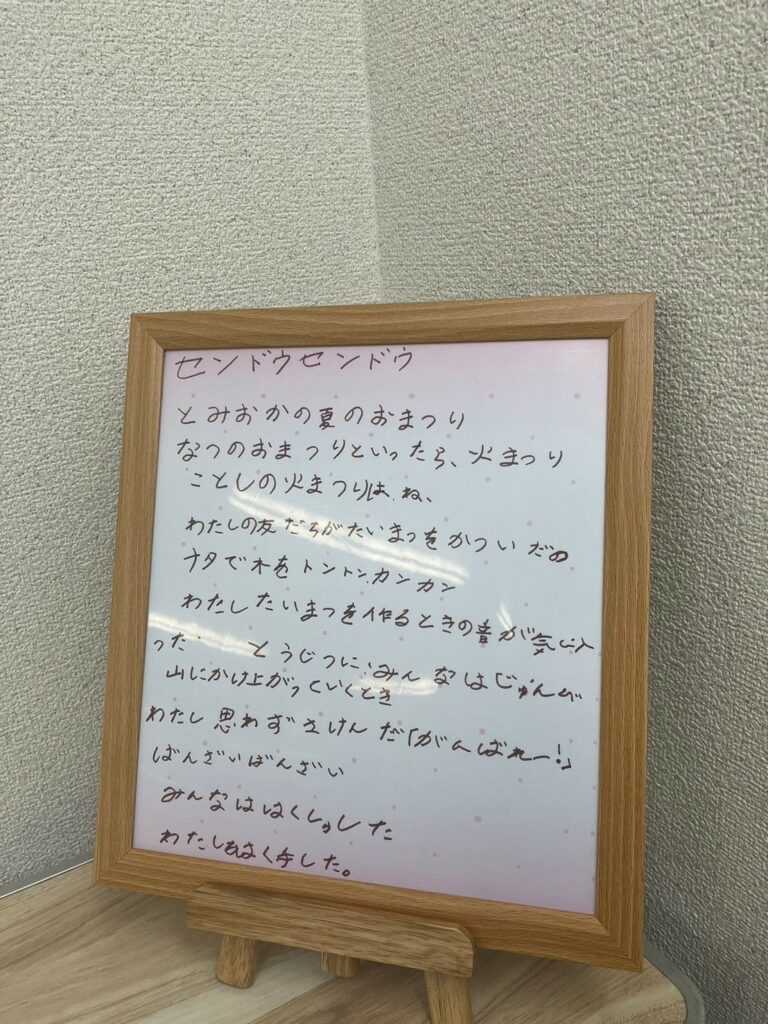 センドウセンドウ
とみおかの夏のおまつり
なつのおまつりといったら、火まつり
ことしの火まつりは、ね、
わたしの友だちがたいまつをかついだの
ナタで木をトントン、カンカン
わたしたいまつを作るときの音が気に入
った とうじつに、みんなはじゅんび
山にかけ上がっていくとき
わたし思わずさけんだ「がんばれー!」
ばんざいばんざい
みんなははくしゅした
わたしもはく手した。